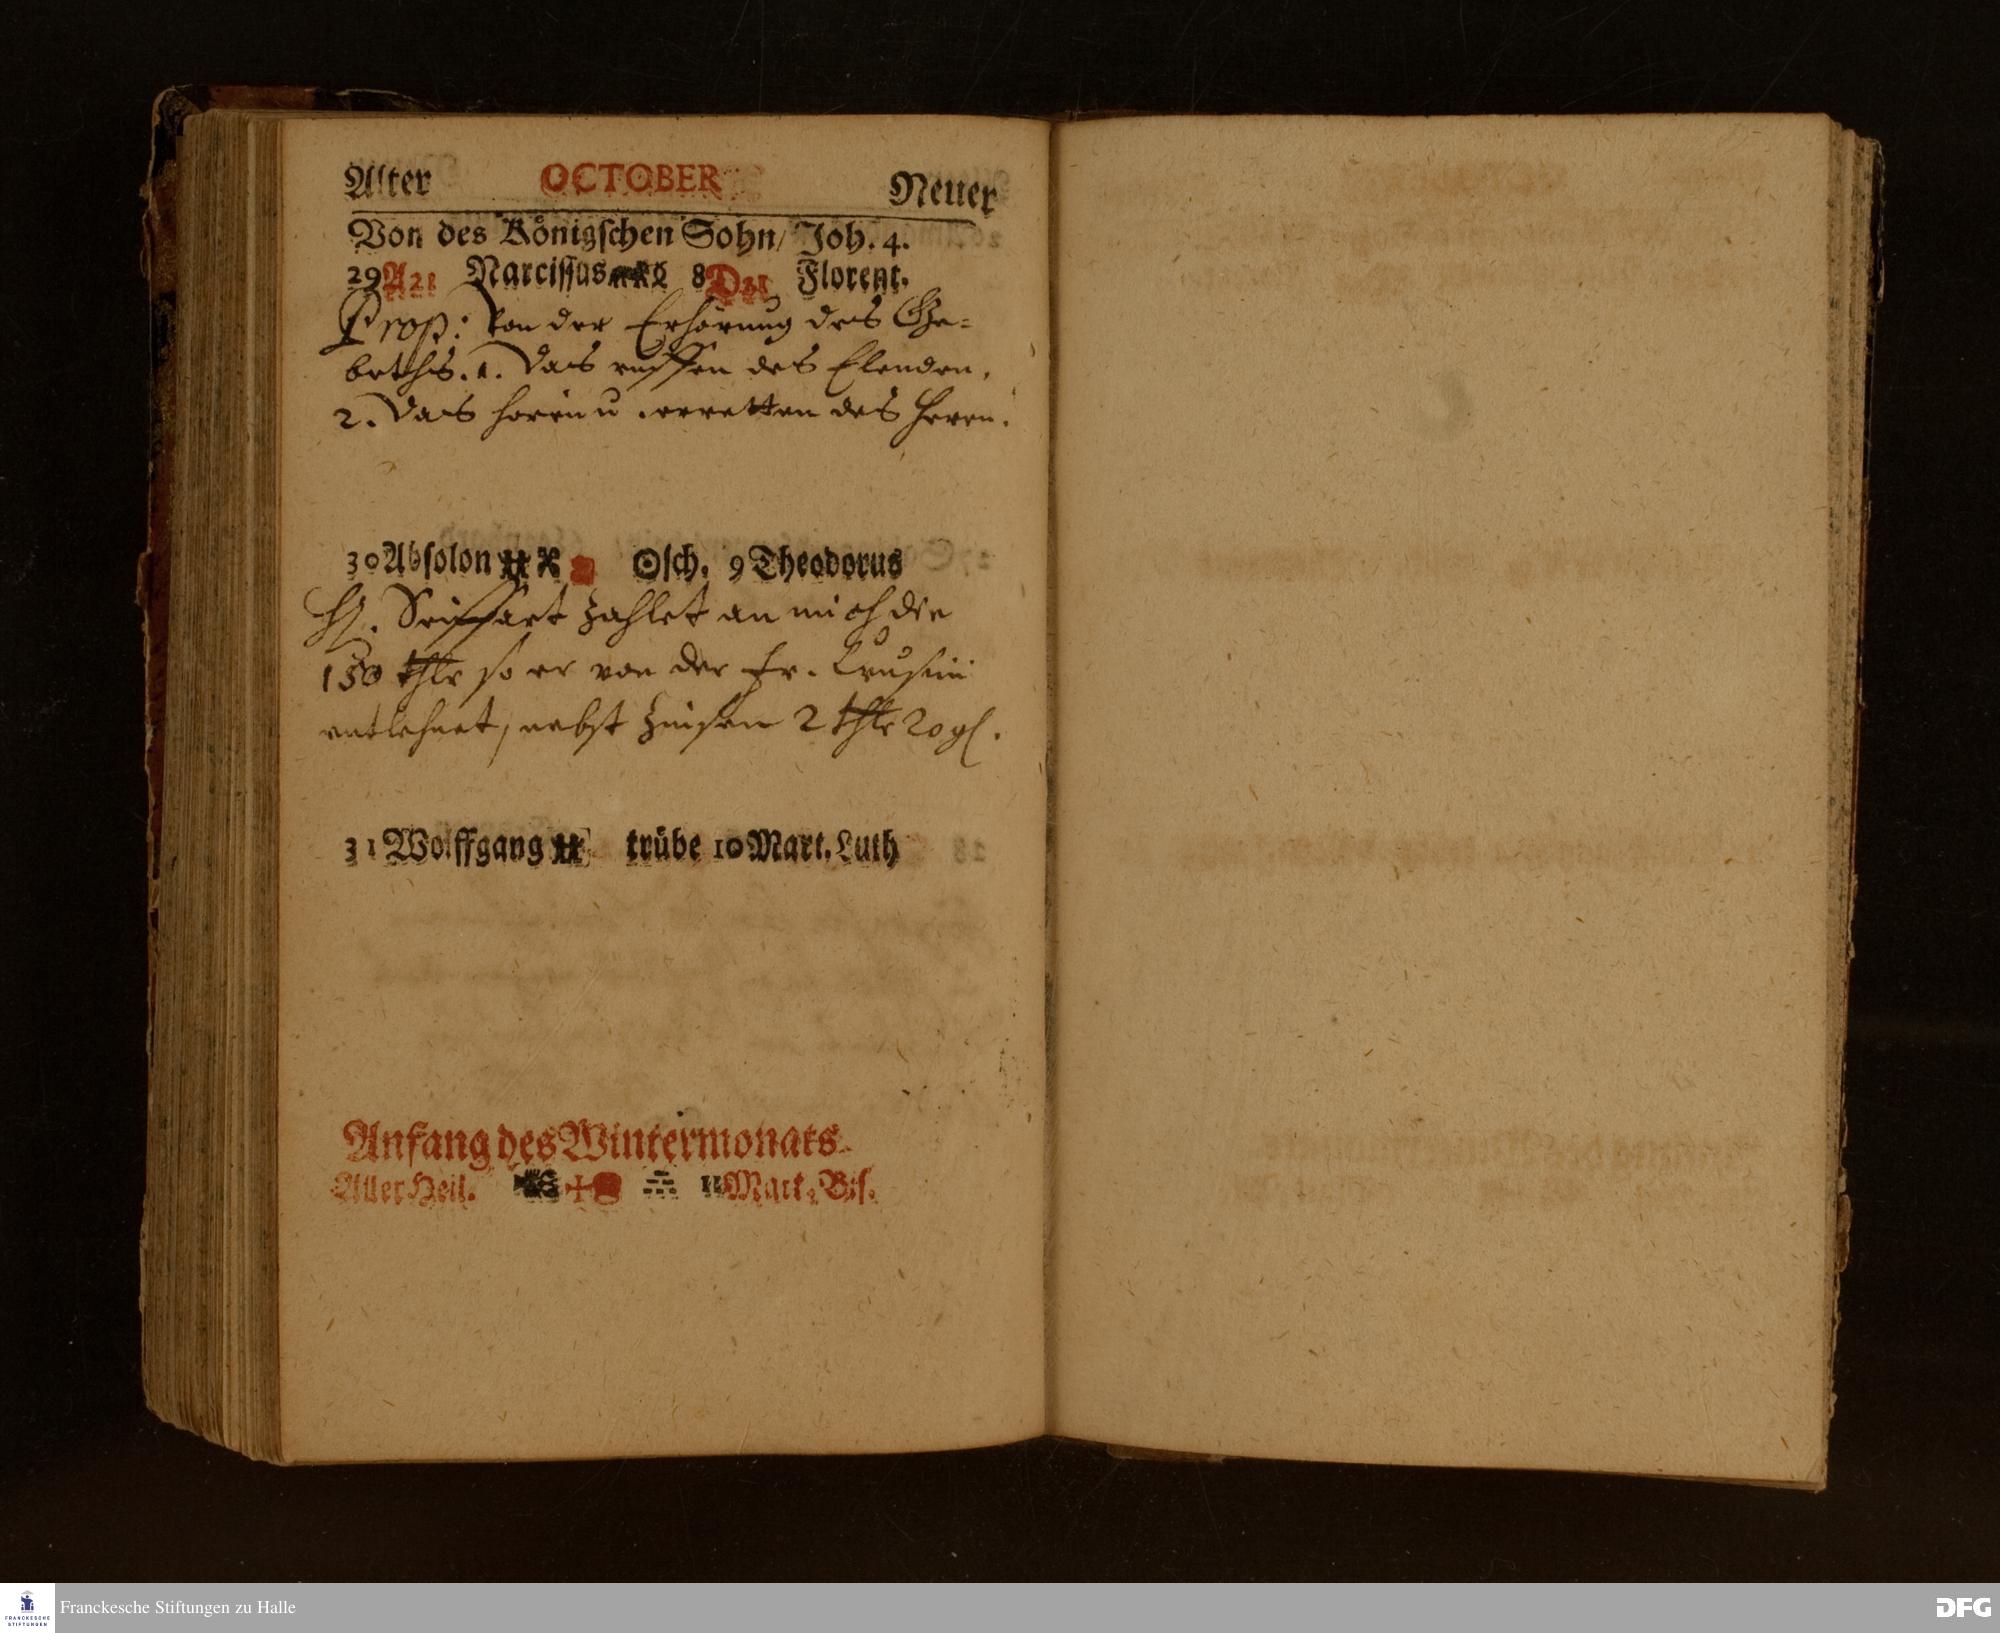 Alter OCTOBER Neuer
Von des Königschen Sohn/ Joh. 4.
29 A 21 Narcissus 8 D 21 Florent.
Prop: Von der Erhörung des Ge-
beths. 1. Das ruffen des Elenden,
2. Das hören u. erretten des Herrn.
30 Absolon ☉sch. 9 Theodorus
H. Seiffart zahlet an mich die
150 thlr so er von der Fr. Crusiii
entlehnet, nebst Zinsen 2 thlr 20 gl.
31 Wolffgang trübe 10 Mart. Luth
Anfang des Wintermonats
Aller Heil. 11 Mart. Bis.
Franckesche Stiftungen zu Halle
FRANCKESCHE
STIFTUNGEN
DFG